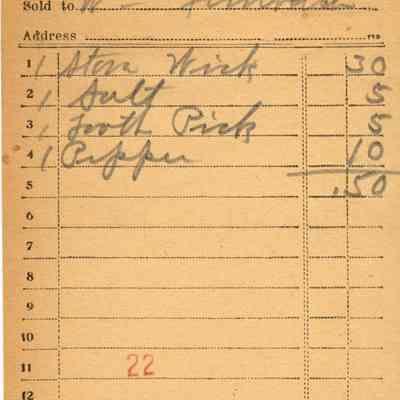 Sold to W
Address
1 1 Stove Wick 30
2 1 Salt 5
3 1 Tooth Pick 5
4 1 Pepper 10
5 .50
6
7
8
9
10
11 22
12